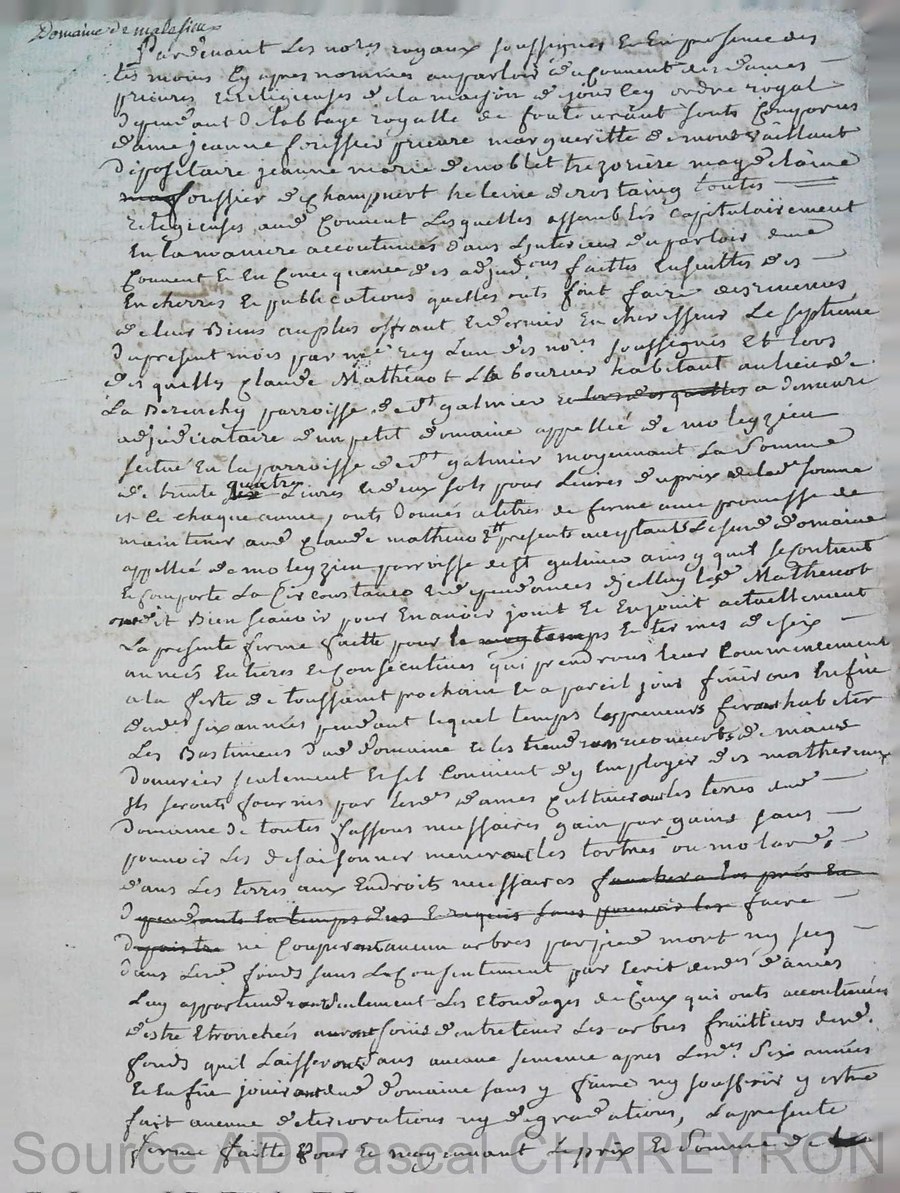 Domaine de malesieux
Pardevant les no.res royaux soussignes et en presence des
tesmoins cy apres nommes au parloir du couvent des dames
prieures et religieuses de la maison de jourcey ordre royal
dependant de labbaye royalle de fontevraut sonts comparues
dame jeanne prieure margueritte de montvaillant
depositaire jeanne marie denoblet trezoriere magdelaine
foussier de champuert heleine derostaing toutes
religieuses aud couvent lesquelles assemblés capitulairement
en la maniere accoutumes dans linterieur du parloir dud
couvent et en consequence des adjudons faittes ensuittes des
encherres et publications quelles onts fait faire des revenus
de leur biens au plus offrant et dernier encherisseur le septieme
du present mois par me rey lun des nores soussignés et lors
des quelles claude Mathieuot laboureur habitant au lieu de
La Berenchy parroisse de st galmier et lors des quelles a demeuré
adjudicataire dun petit domaine appellé de moleyzieu
scitué en la parroisse de st galmier moyennant la somme
de trente quatre livres et deux sols pour livres du prix de lad somme
et ce chaque année, onts donnés a titres de ferme avec promesse de
maintenir aud claude matheuot present acceptant le susd domaine
appellé de moleyzieu parroisse de st galmier ainsy quil se contient
et comporte la circonstances et dependances dicelluy led Matheuot
ont dit bien sçavoir pour en avoir jouit et en jouit actuellement
La presente ferme faitte pour le moy temps et termes de six
années entieres et consecutives qui prendrons leur commencement
a la feste de toussaint prochaine et a pareil jour finirons en fin
desds six années pendant lequel temps les preneurs feront habiter
les bastiments dud domaine et les tiendront recouverts de mains
douvrier seulement et sil convient dy employer des matheriaux
ils seronts fournis par lesds dames cultiveront les terres dud
domaine de toutes fassons necessaires gain par gains sans
pouvoir les desaisonner meneront les tortres ou molards
dans les terres aux endroits necessaires fauchera les prés en
dependants en temps dus et requis sans pouvoir les faire
depaitre ne couperont aucun arbres par pied mort ny secq
dans lesd fonds sans le consentement par ecrit desds dames
Luy appartiendront seulement les etondages de ceux qui onts accoutumés
destre etronchés auront soins dentretenir les arbres fruittiers desd.
fonds quil laisseront sans aucune semence apres lesds six années
et enfin jouiront dud domaine sans y faire ny souffrir y estre
fait aucune detteriorations ny degradations, la presente
ferme faitte pour et moyennant le prix et somme de
Source AD Pascal CHAREYRON